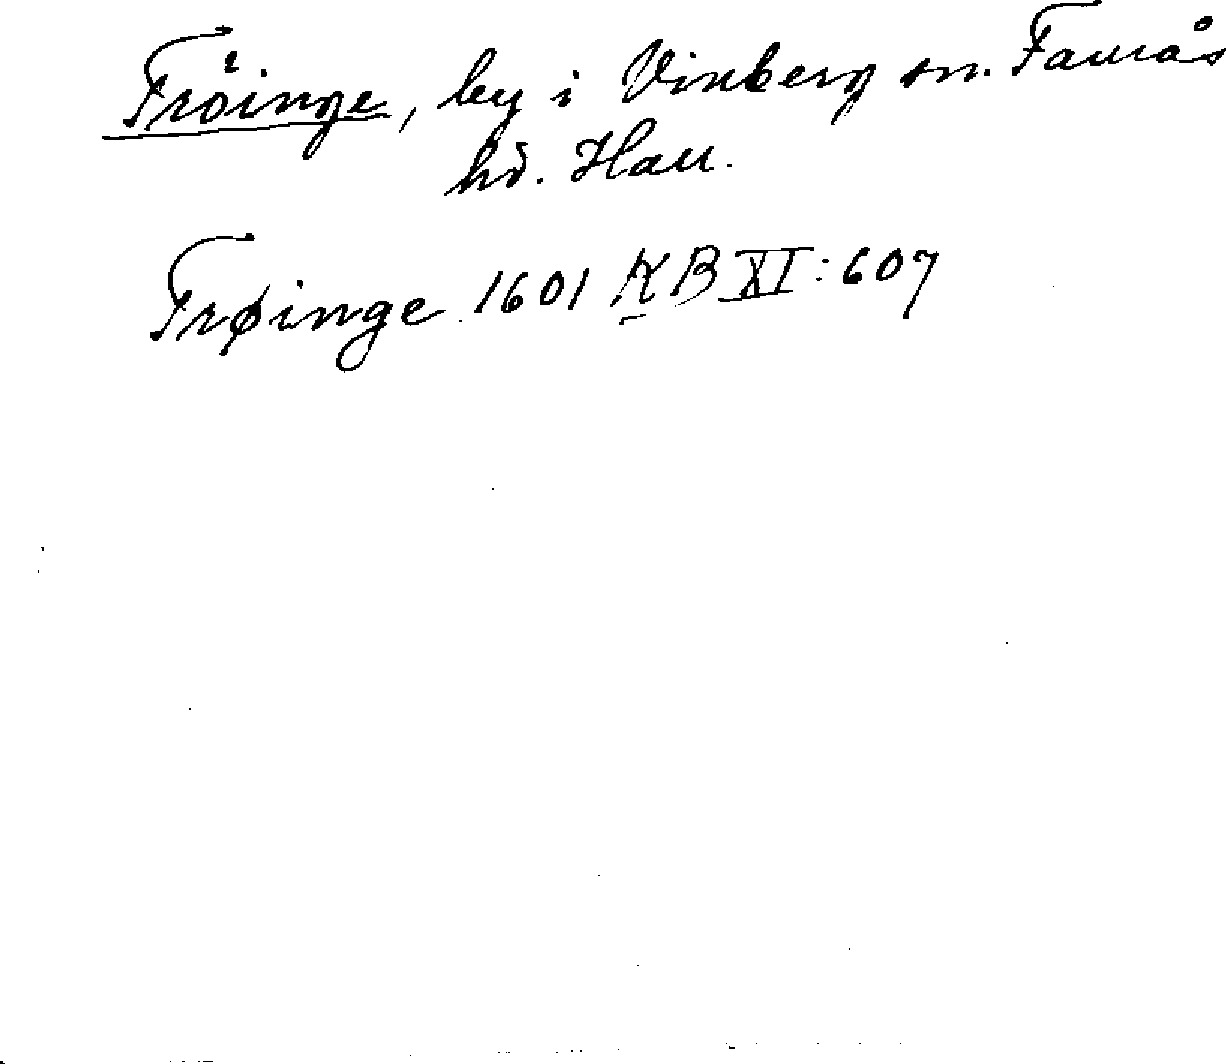 Fröinge, by i Vinberg sn. Faurås
hd. Hall.
Frøinge 1601 KB XI:607